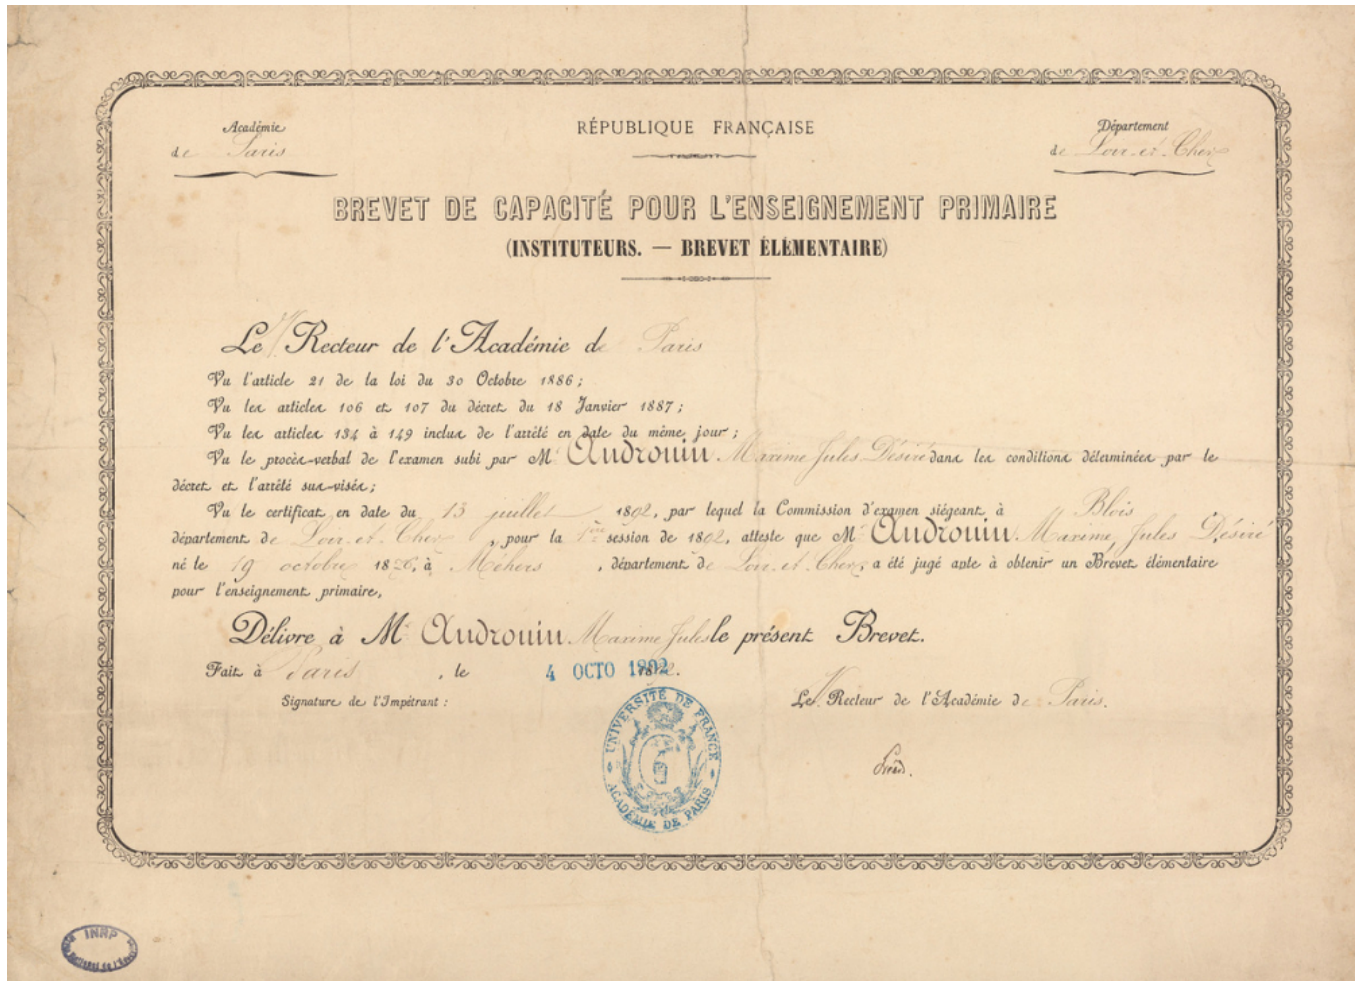 Académie
de Paris
RÉPUBLIQUE FRANÇAISE
Département
de Loir-et-Cher
BREVET DE CAPACITÉ POUR L'ENSEIGNEMENT PRIMAIRE
(INSTITUTEURS. — BREVET ÉLÉMENTAIRE)
Le Recteur de l'Académie de Paris
Vu l'article 21 de la loi du 30 Octobre 1886;
Vu les articles 106 et 107 du décret du 18 Janvier 1887;
Vu les articles 134 à 149 inclus de l'arrêté en date du même jour;
Vu le procès-verbal de l'examen subi par M. Audrouin Maxime Jules Désiré dans les conditions déterminées par le
décret et l'arrêté sus-visés;
Vu le certificat en date du 13 juillet 1892, par lequel la Commission d'examen siégeant à Blois
département de Loir-et-Cher, pour la 1ère session de 1892, atteste que M. Audrouin Maxime Jules Désiré
né le 19 octobre à Méhers, département de Loir-et-Cher, a été jugé apte à obtenir un Brevet élémentaire
pour l'enseignement primaire,
Délivre à M. Audrouin Maxime Jules le présent Brevet.
Fait à Paris, le 4 OCTO 1892
Signature de l'Impétrant :
Le Recteur de l'Académie de Paris.
Gréard.
UNIVERSITÉ DE FRANCE
ACADÉMIE DE PARIS
INRP